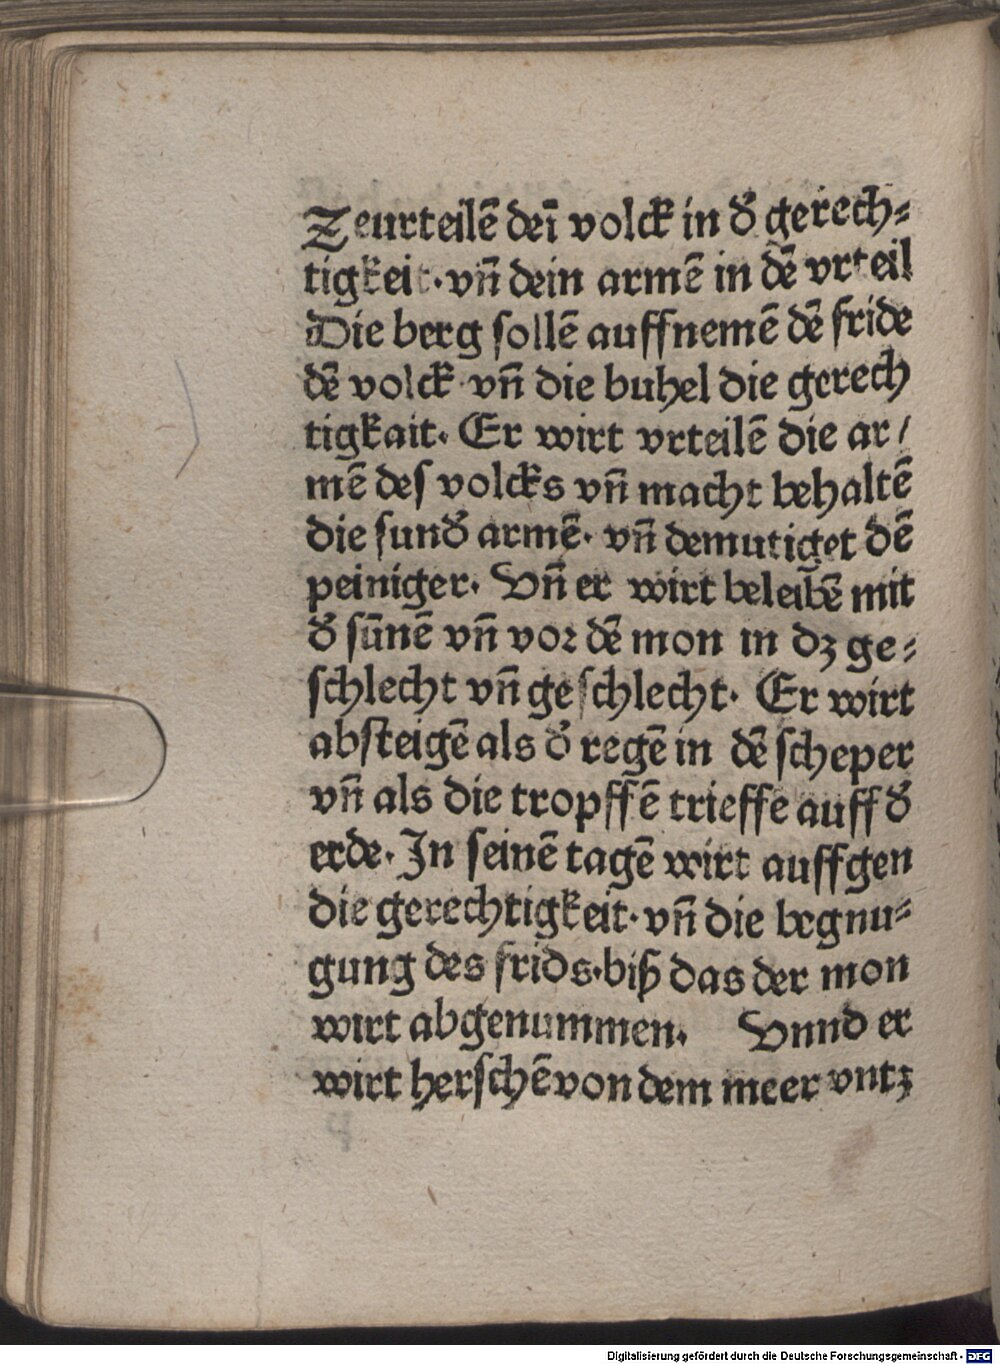 Zeurteilē deī volck in đ gerech⸗
tigkeit·vn̄ dein armē in dē vrteil
Die berg ſollē auffnemē dē fride
dē volck vn̄ die buhel die gerech
tigkait. Er wirt vrteilē die ar/
mē des volcks vn̄ macht behaltē
die ſunđ armē. vn̄ demutiget dē
peiniger. Vn̄ er wirt beleibē mit
đ ſūnē vn̄ vor dē mon in dz ge⸗
ſchlecht vn̄ geſchlecht. Er wirt
abſteigē als đ regē in dē ſcheper
vn̄ als die tropffē trieffe auff đ
erde. In ſeinē tagē wirt auffgen
die gerechtigkeit·vn̄ die begnu⸗
gung des frids·biß das der mon
wirt abgenummen. Vnnd er
wirt herſchē von dem meer vntz
Digitalisierung gefördert durch die Deutsche Forschungsgemeinschaft - DFG